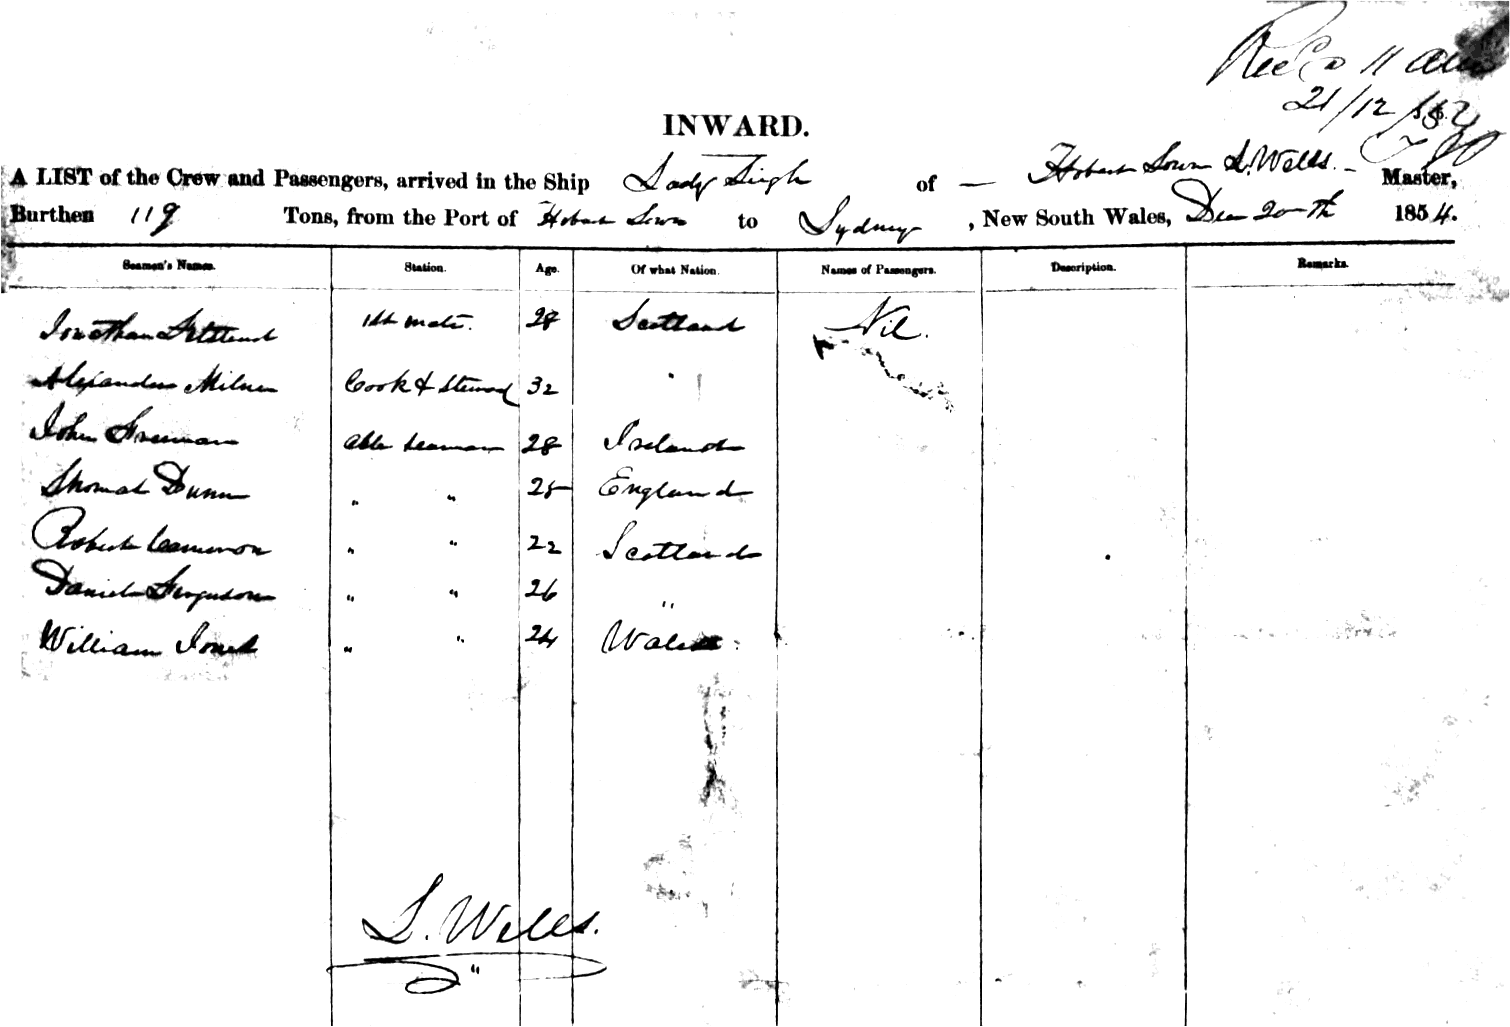 Recd 11 am
21/12/54
INWARD.
A LIST of the Crew and Passengers, arrived in the Ship Lady Leigh of — Hobart Town S. Wells. - Master,
Burthen 119 Tons, from the Port of Hobart Town to Sydney, New South Wales, Dec 20th 1854.
Seamen's Names. Station. Age. Of what Nation. Names of Passengers. Description. Remarks.
Jonathan 1st mate. 28 Scotland Nil.
Alexander Milner Cook & Steward 32 "
John Freeman Able Seaman 28 Ireland
Thomas Dunn " " 25 England
Robert Cameron " " 22 Scotland
Daniel Ferguson " " 26 "
William Jones " " 24 Wales
S. Wells.